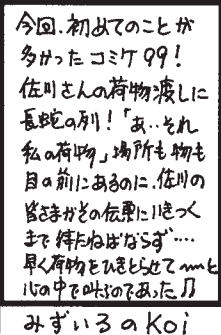 今回、初めてのことが
多かったコミケ99!
佐川さんの荷物渡しに
長蛇の列!「あ..それ
私の荷物」場所も物も
目の前にあるのに、佐川の
皆さまがその伝票に行きつく
まで待たねばならず…
早く荷物をひきとらせて〜〜と
心の中で叫ぶのであった♫
みずいろのKoi